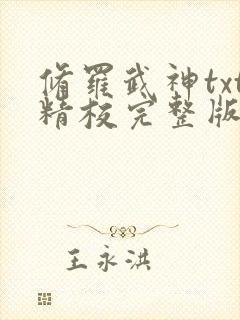 脩罗武神txt
精校完整版
王永洪